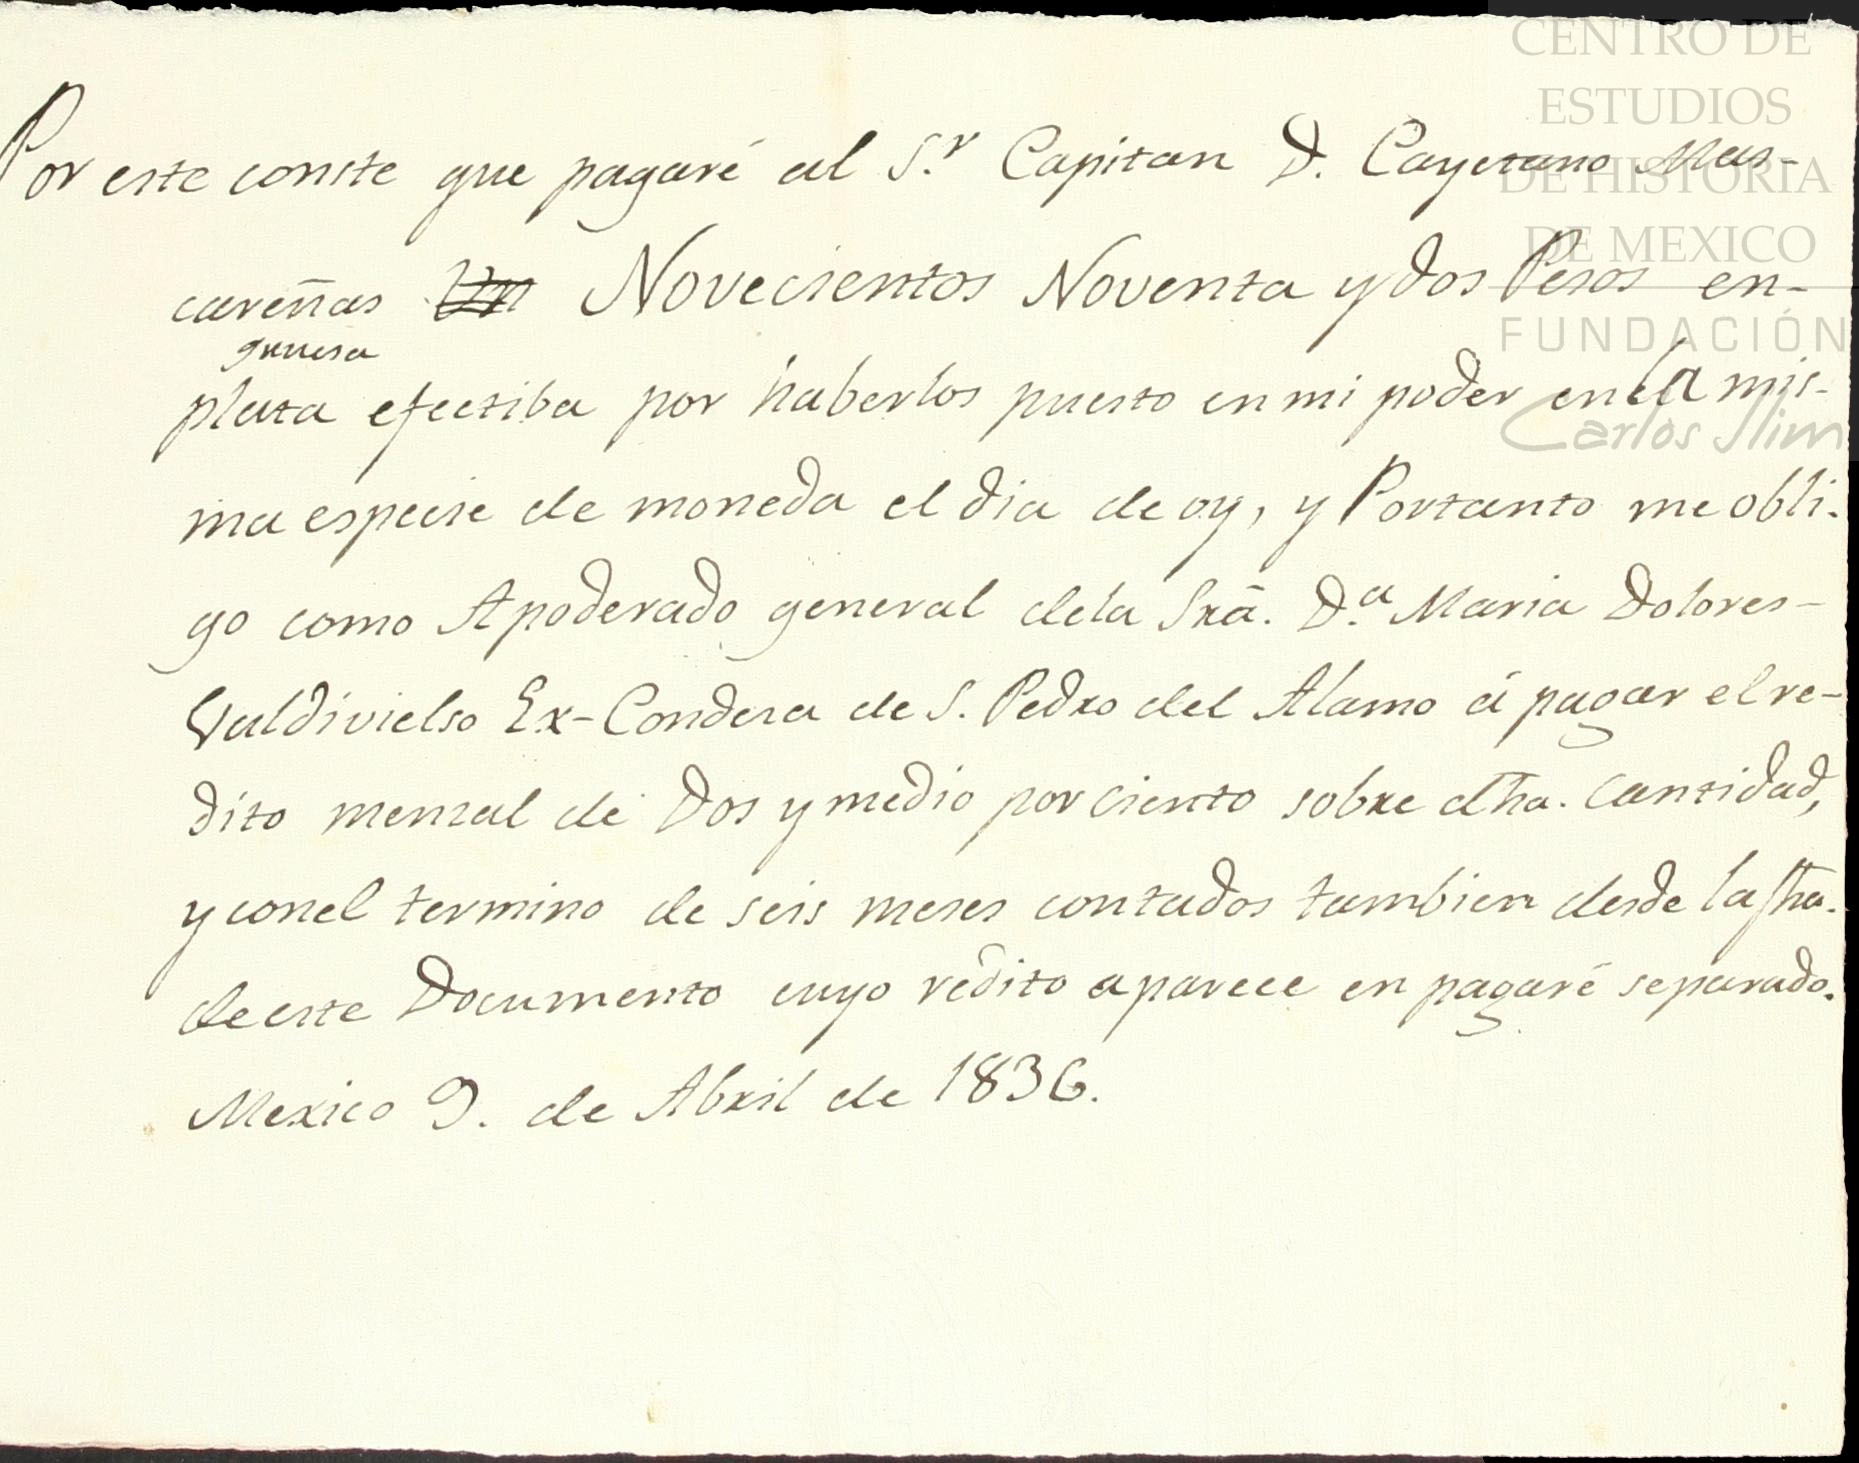 CENTRO DE
ESTUDIOS
DE HISTORIA
DE MEXICO
FUNDACIÓN
Carlos Slim
Por este conste que pagaré al S.r Capitan D. Cayetano Mas-
careñas Novecientos Noventa y dos Pesos en-
gruesa
plata efectiba por haberlos puesto en mi poder en la mis-
ma especie de moneda el dia de oy, y Portanto me obli-
go como Apoderado general dela Srã. D.a Maria Dolores-
Valdivielso Ex-Condesa de S. Pedro del Alamo á pagar el re-
dito mensal de Dos y medio por ciento sobre dha. Cantidad,
y conel termino de seis meses contados tambien desde la fha.
de este Documento cuyo rédito aparece en pagaré separado.
Mexico 9. de Abril de 1836.